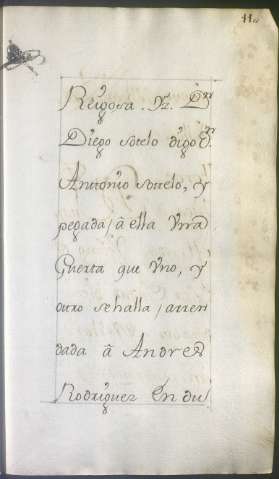 44
Reigosa. Yz. Dn
Diego sotelo digo Dn
Antonio sotelo, y
pegada, â ella Vna
Guerta que Vno, y
outro sehalla, arren
dada â Andrea
Rodriguez En du